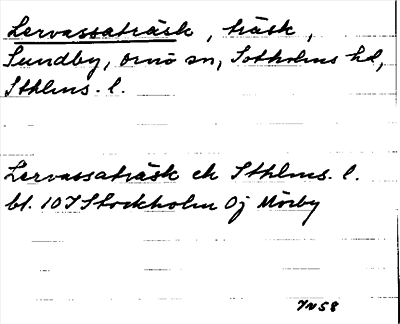 Lervassaträsk, träsk,
Sundby, Ornö sn, Sotholms hd,
Sthlms. l.
Lervassaträsk ek Sthlms. l.
bl. 107 Stockholm Oj Mörby